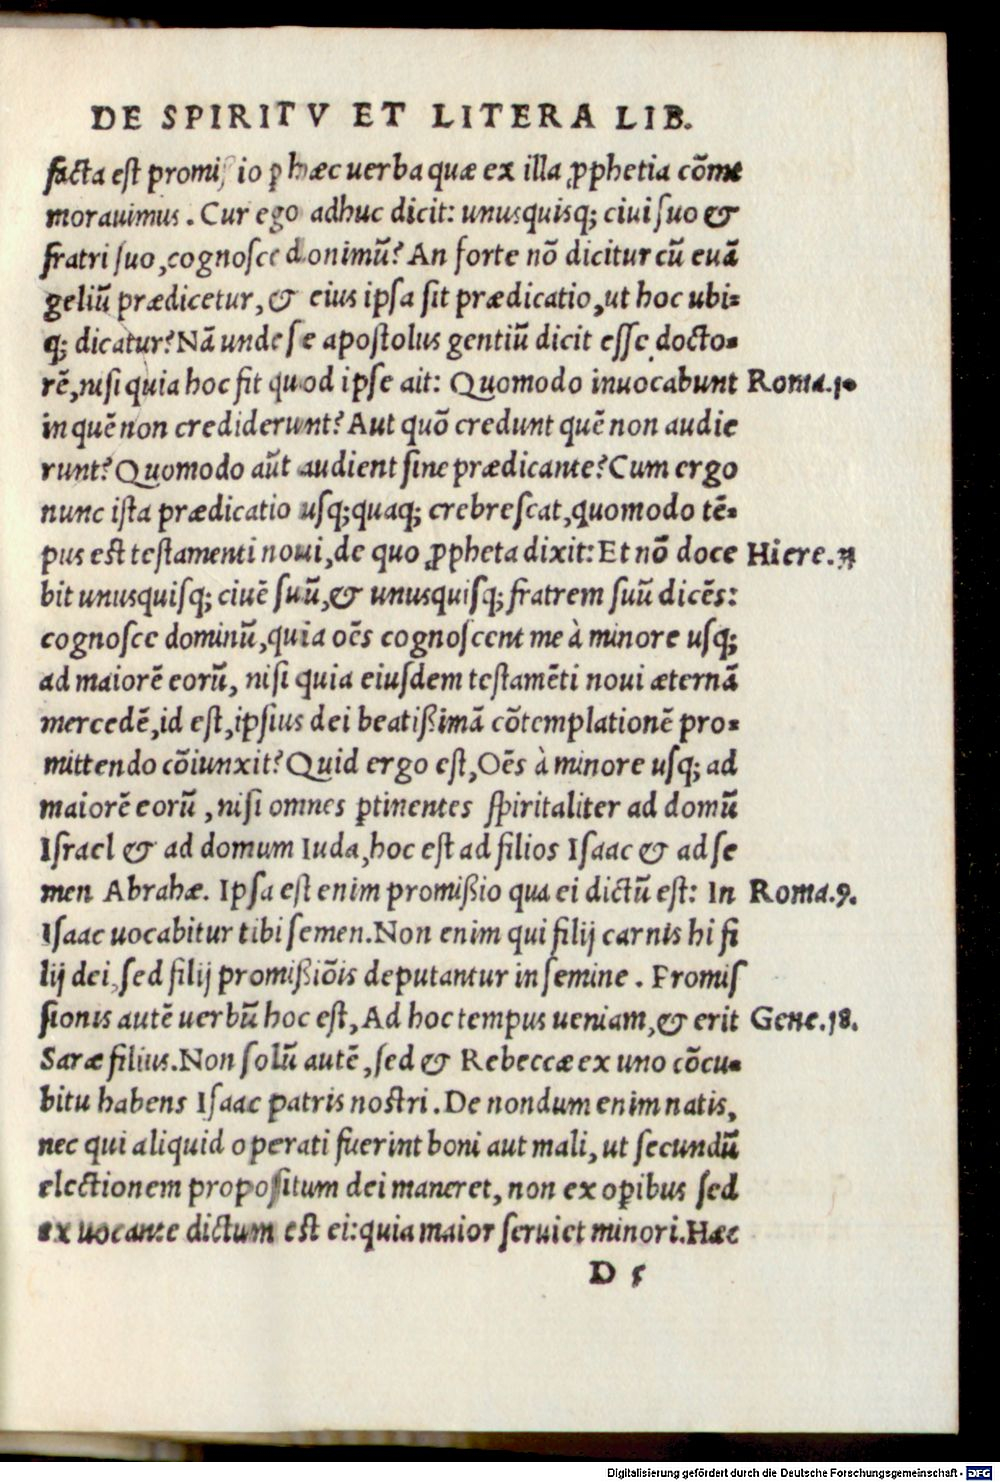 DE SPIRITV ET LITERA LIB.
facta est promissio ꝑ hæc uerba quæ ex illa ꝓphetia cõme
morauimus. Cur ego adhuc dicit: unusquisq; ciui suo &
fratri suo, cognosce donimũ? An forte nõ dicitur cũ euã
geliũ prædicetur, & eius ipsa sit prædicatio, ut hoc ubi-
q; dicatur? Nã unde se apostolus gentiũ dicit esse docto-
rẽ, nisi quia hoc fit quod ipse ait: Quomodo inuocabunt Roma.10
in quẽ non crediderunt? Aut quõ credunt quẽ non audie
runt? Quomodo aũt audient sine prædicante? Cum ergo
nunc ista prædicatio usq;quaq; crebrescat, quomodo tẽ-
pus est testamenti noui, de quo ꝓpheta dixit: Et nõ doce Hiere.31
bit unusquisq; ciuẽ suũ, & unusquisq; fratrem suũ dicẽs:
cognosce dominũ, quia oẽs cognoscent me à minore usq;
ad maiorẽ eorũ, nisi quia eiusdem testamẽti noui æternã
mercedẽ, id est, ipsius dei beatißimã cõtemplationẽ pro-
mittendo cõiunxit? Quid ergo est, Oẽs à minore usq; ad
maiorẽ eorũ, nisi omnes ꝑtinentes spiritaliter ad domũ
Israel & ad domum Iuda, hoc est ad filios Isaac & ad se
men Abrahæ. Ipsa est enim promißio qua ei dictũ est: In Roma.9.
Isaac uocabitur tibi semen. Non enim qui filij carnis hi fi
lij dei, sed filij promißiõis deputantur in semine. Promis
sionis autẽ uerbũ hoc est, Ad hoc tempus ueniam, & erit Gene.18.
Saræ filius. Non solũ autẽ, sed & Rebeccæ ex uno cõcu-
bitu habens Isaac patris nostri. De nondum enim natis,
nec qui aliquid operati fuerint boni aut mali, ut secundũ
electionem propositum dei maneret, non ex oꝑibus sed
ex uocante dictum est ei: quia maior seruiet minori. Hæc
D 5
Digitalisierung gefördert durch die Deutsche Forschungsgemeinschaft - DFG